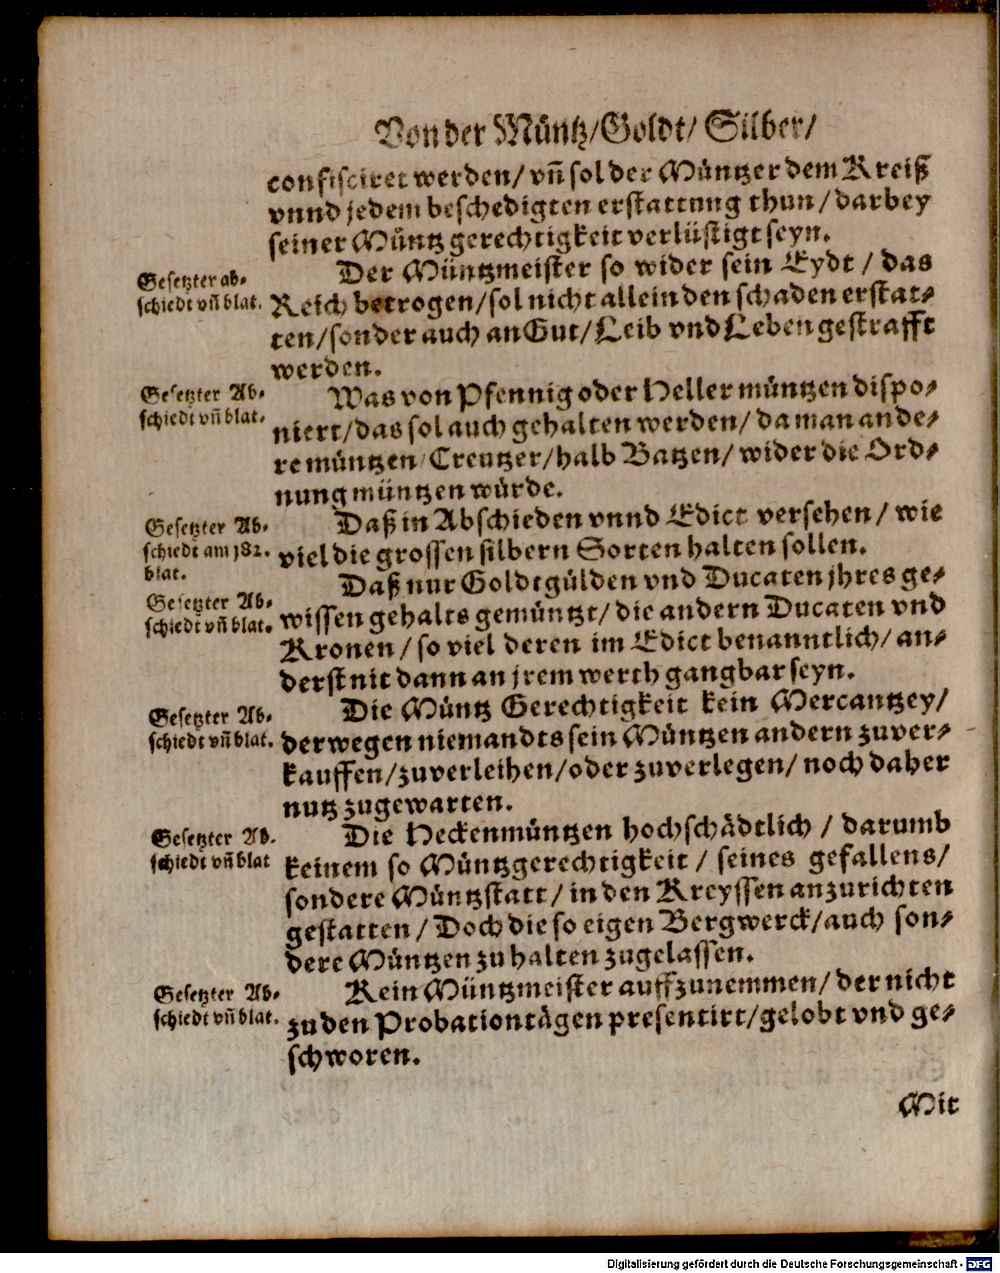 Von der Müntz/Goldt/ Silber/
confisciret werden/ vñ sol der Müntzer dem Kreiß
vnnd jedem beschedigten erstattung thun/ darbey
seiner Müntz gerechtigkeit verlüstigt seyn.
Gesetzter ab-
schiedt vñ blat.
Der Müntzmeister so wider sein Eydt / das
Reich betrogen/sol nicht allein den schaden erstat-
ten/sonder auch an Gut/ Leib vnd Leben gestrafft
werden.
Gesetzter Ab-
schiedt vñ blat.
Was von Pfennig oder Heller müntzen dispo-
niert/das sol auch gehalten werden/ da man ande-
re müntzen/ Creutzer/halb Batzen/ wider die Ord-
nung müntzen würde.
Gesetzter Ab-
schiedt am 182.
blat.
Daß in Abschieden vnnd Edict versehen/ wie
viel die grossen silbern Sorten halten sollen.
Gesetzter Ab-
schiedt vñ blat.
Daß nur Goldtgülden vnd Ducaten jhres ge-
wissen gehalts gemüntzt/ die andern Ducaten vnd
Kronen/ so viel deren im Edict benanntlich/ an-
derst nit dann an jrem werth gangbar seyn.
Gesetzter Ab-
schiedt vñ blat.
Die Müntz Gerechtigkeit kein Mercantzey/
derwegen niemandts sein Müntzen andern zuver-
kauffen/zuverleihen/oder zuverlegen/ noch daher
nutz zugewarten.
Gesetzter Ab.
schiedt vñ blat
Die Heckenmüntzen hochschädtlich / darumb
keinem so Müntzgerechtigkeit / seines gefallens/
sondere Müntzstatt/ in den Kreyssen anzurichten
gestatten/ Doch die so eigen Bergwerck/auch son-
dere Müntzen zu halten zugelassen.
Gesetzter Ab-
schiedt vñ blat.
Kein Müntzmeister auffzunemmen/ der nicht
zu den Probationtägen presentirt/gelobt vnd ge-
schworen.
Mit
Digitalisierung gefördert durch die Deutsche Forschungsgemeinschaft - DFG